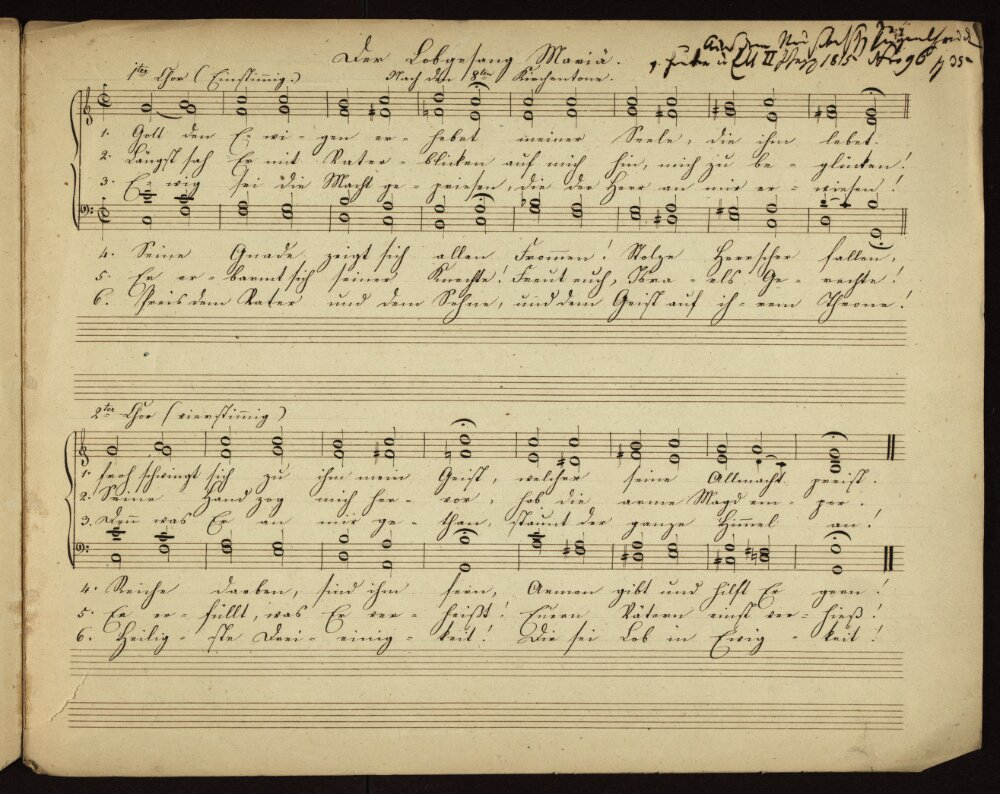 Der Lobgesang Mariä.
Nach dem 8ten Kirchentone.
1ter Chor (Einstimmig)
1. Gott den E- wi- gen er- hebet meiner Seele, die ihm lebet.
2. Längst sah Er mit Vater- blicken auf mich hin, mich zu be- glücken!
3. E- wig sei die Macht ge- priesen, die der Herr an mir er- wiesen!
4. Seine Gnade zeigt sich allen Frommen! Stolze Herrscher fallen,
5. Er er- barmt sich seiner Knechte! Freut euch, Isra- els Ge- rechte!
6. Preis dem Vater und dem Sohne, und dem Geist auf ih- rem Throne!
2ter Chor (vierstimmig)
1. froh schwingt sich zu ihm mein Geist, welcher seine Allmacht preist.
2. Seine Hand zog mich her- vor, hob die arme Magd em- por.
3. Denn was Er an mir ge- than, staunt der ganze Himmel an!
4. Reiche darben, sind ihm fern, Armen gibt und hilft Er gern!
5. Er er- füllt, was Er ver- heißt! Euern Vätern einst ver- hieß!
6. Heilig- ste Drei- einig- keit! Dir sei Lob in Ewig- keit!